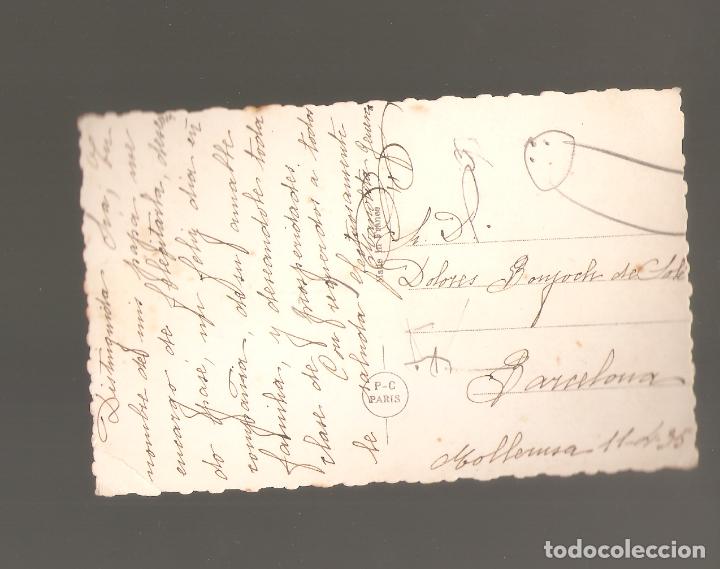 Distinguida Sra, en
nombre de mis papa me
encargo de felicitarla, desean
do pase, un feliz dia en
compañia, de su amable
familia, y deseandole toda
clase de prosperidades
Con recuerdos a todos
le saluda afectuosamente
Made in France
P-C
PARIS
D.
Dolores Bonjoch de Solé
Barcelona
Mollerusa 11-4-35
todocoleccion
todocoleccion.net